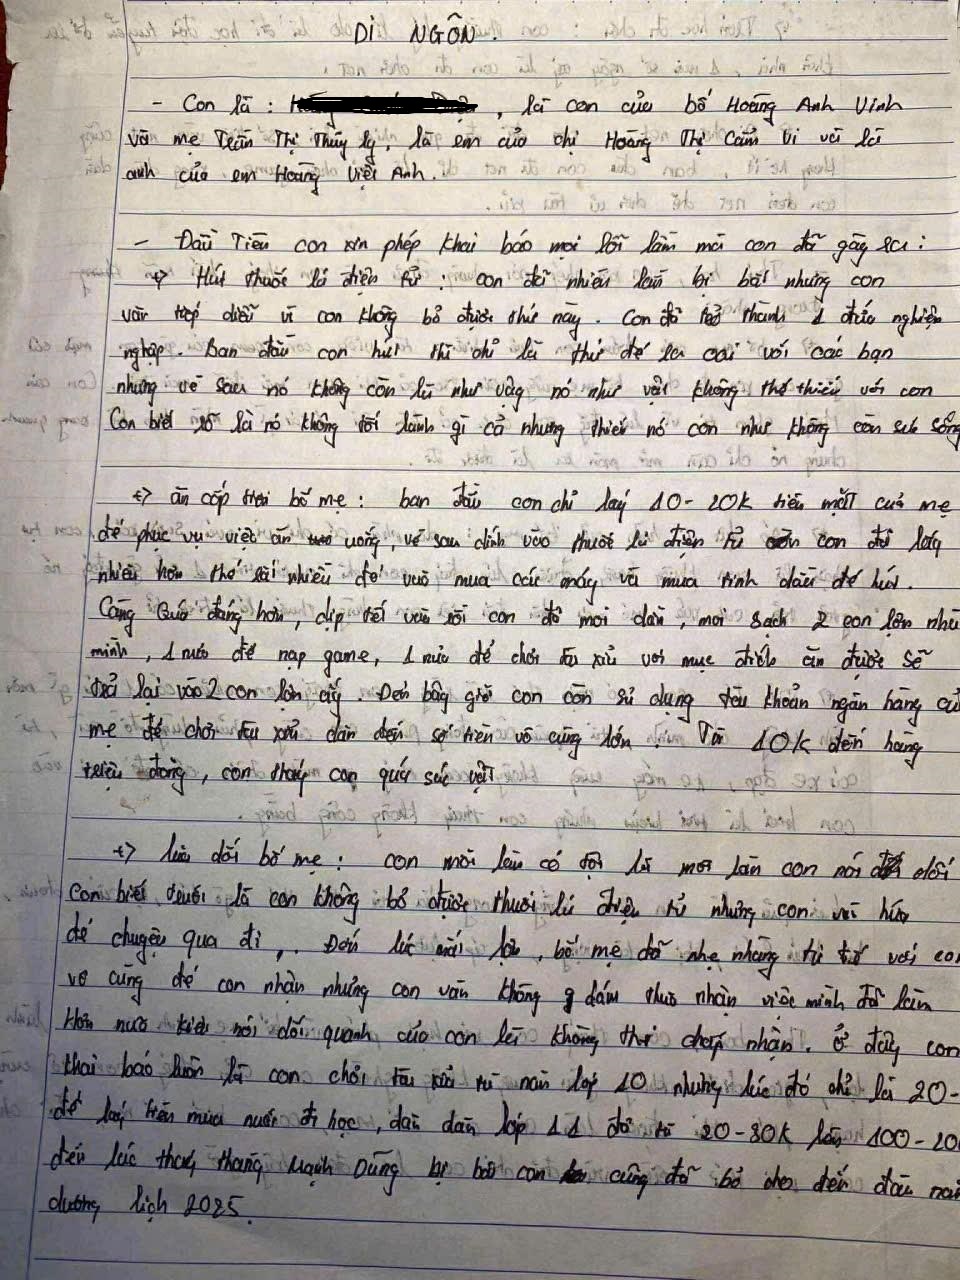 DI NGÔN.
- Con là : , là con của bố Hoàng Anh Vinh
và mẹ Trần Thị Thúy Ly, là em của chị Hoàng Thị Cẩm Vi và là
anh của em Hoàng Việt Anh.
- Đầu Tiên con xin phép khai báo mọi lỗi lầm mà con đã gây ra :
+> Hút thuốc lá điện tử : con đã nhiều lần bị bắt nhưng con
vẫn tiếp diễn vì con không bỏ được thứ này. Con đã trở thành 1 đứa nghiện
ngập. Ban đầu con hút thì chỉ là thử để ra oai với các bạn
nhưng về sau nó không còn là như vậy nó như vật không thể thiếu với con
Con biết rõ là nó không tốt lành gì cả nhưng thiếu nó con như không còn sức sống
+> ăn cắp tiền bố mẹ : ban đầu con chỉ lấy 10-20k tiền mặt của mẹ
để phục vụ việc ăn uống, về sau dính vào thuốc lá điện tử con đã lấy
nhiều hơn thế rất nhiều để mua các máy và mua tinh dầu để hút.
Càng quá đáng hơn, dịp tết vừa rồi con đã moi dần, moi sạch 2 con lợn nhà
mình, 1 nửa để nạp game, 1 nửa để chơi tài xỉu với mục đích ăn được sẽ
trả lại vào 2 con lợn ấy. Đến bây giờ con còn sử dụng tài khoản ngân hàng củ
mẹ để chơi tài xỉu dẫn đến số tiền vô cùng lớn. Từ 10k đến hàng
triệu đồng, con thấy con quá súc vật
+> lừa dối bố mẹ : con mỗi lần có tội là mỗi lần con nói dối
con biết, là con không bỏ được thuốc lá điện tử nhưng con vẫn hứa
để chuyện qua đi, Đến lúc mất lợn, bố mẹ đã nhẹ nhàng từ tốn với con
vô cùng để con nhận nhưng con vẫn không dám thừa nhận việc mình đã làm
nói dối quanh của con là không thể chấp nhận. Ở đây con
khai báo luôn là con chơi tài xỉu từ năm lớp 10 nhưng lúc đó chỉ là 20-
để lấy tiền mua nước đi học, dần dần lớp 11 đã từ 20-30k lên 100-20
đến lúc thấy thằng Mạnh Dũng bị bắt con cũng đã bỏ cho đến đầu năm
dương lịch 2025.